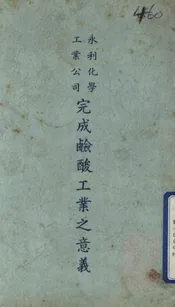 4160
永利化學
工業公司
完成鹼酸工業之意義